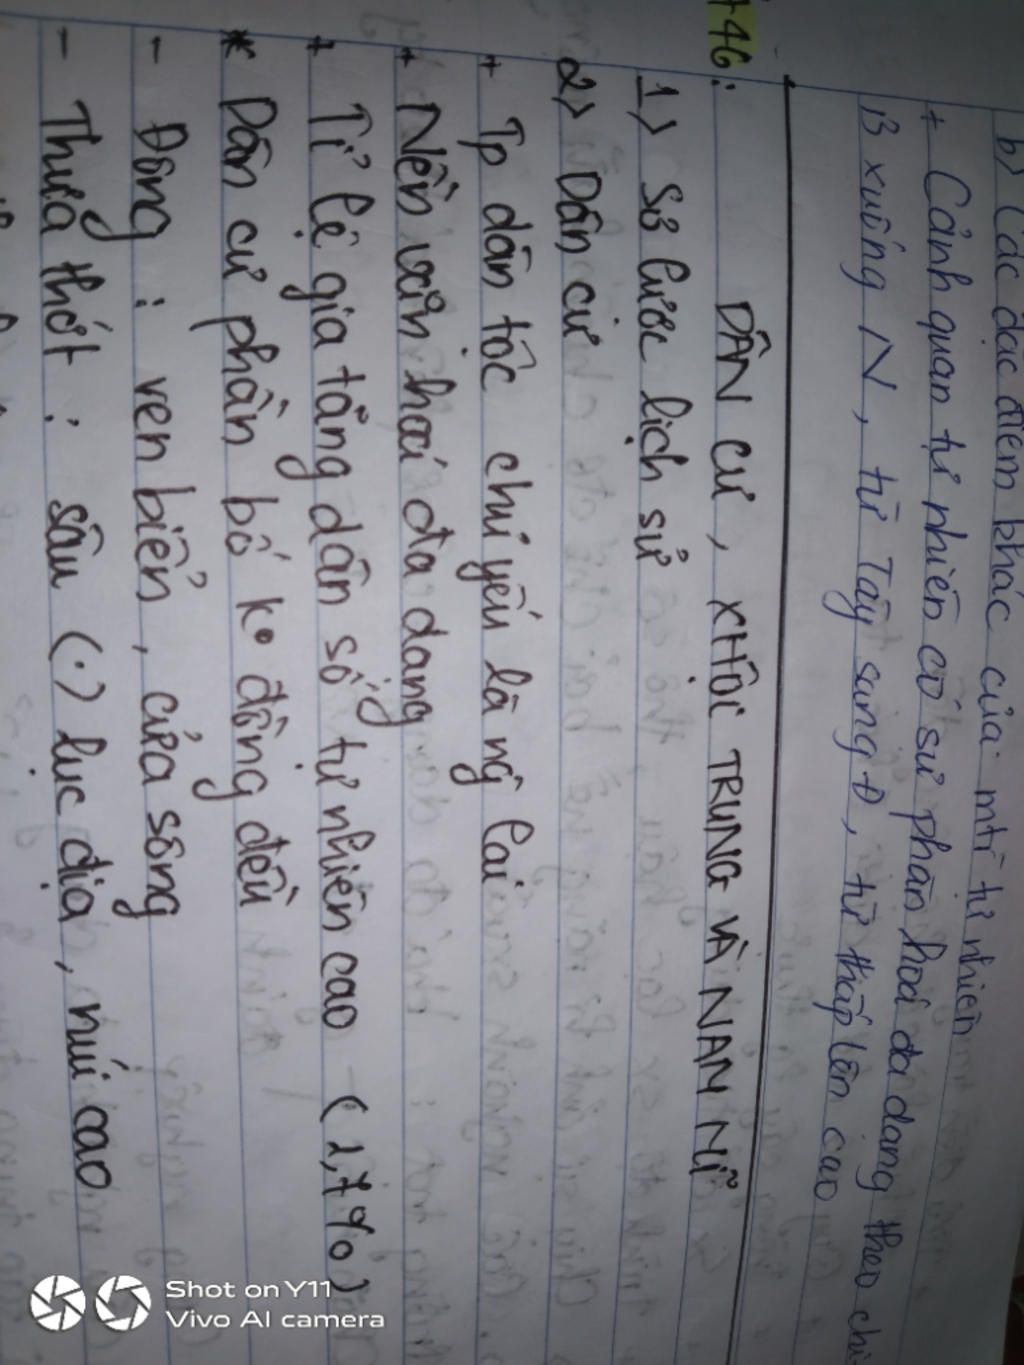 b) Các đặc điểm khác của mtr tự nhiên
+ Cảnh quan tự nhiên có sự phân hoá đa dạng theo chi
B xuống N, từ Tây sang Đ, từ thấp lên cao
+46: DÂN CƯ, XHỘI TRUNG VÀ NAM MĨ
1) Sơ lược lịch sử
2) Dân cư
+ Tp dân tộc chủ yếu là ng lai
+ Nền văn hoá đa dạng
+ Tỉ lệ gia tăng dân số tự nhiên cao (1,7%)
* Dân cư phân bố ko đồng đều
- Đông: ven biển, cửa sông
- Thưa thớt: sâu (.) lục địa, núi cao
Shot on Y11
Vivo AI camera